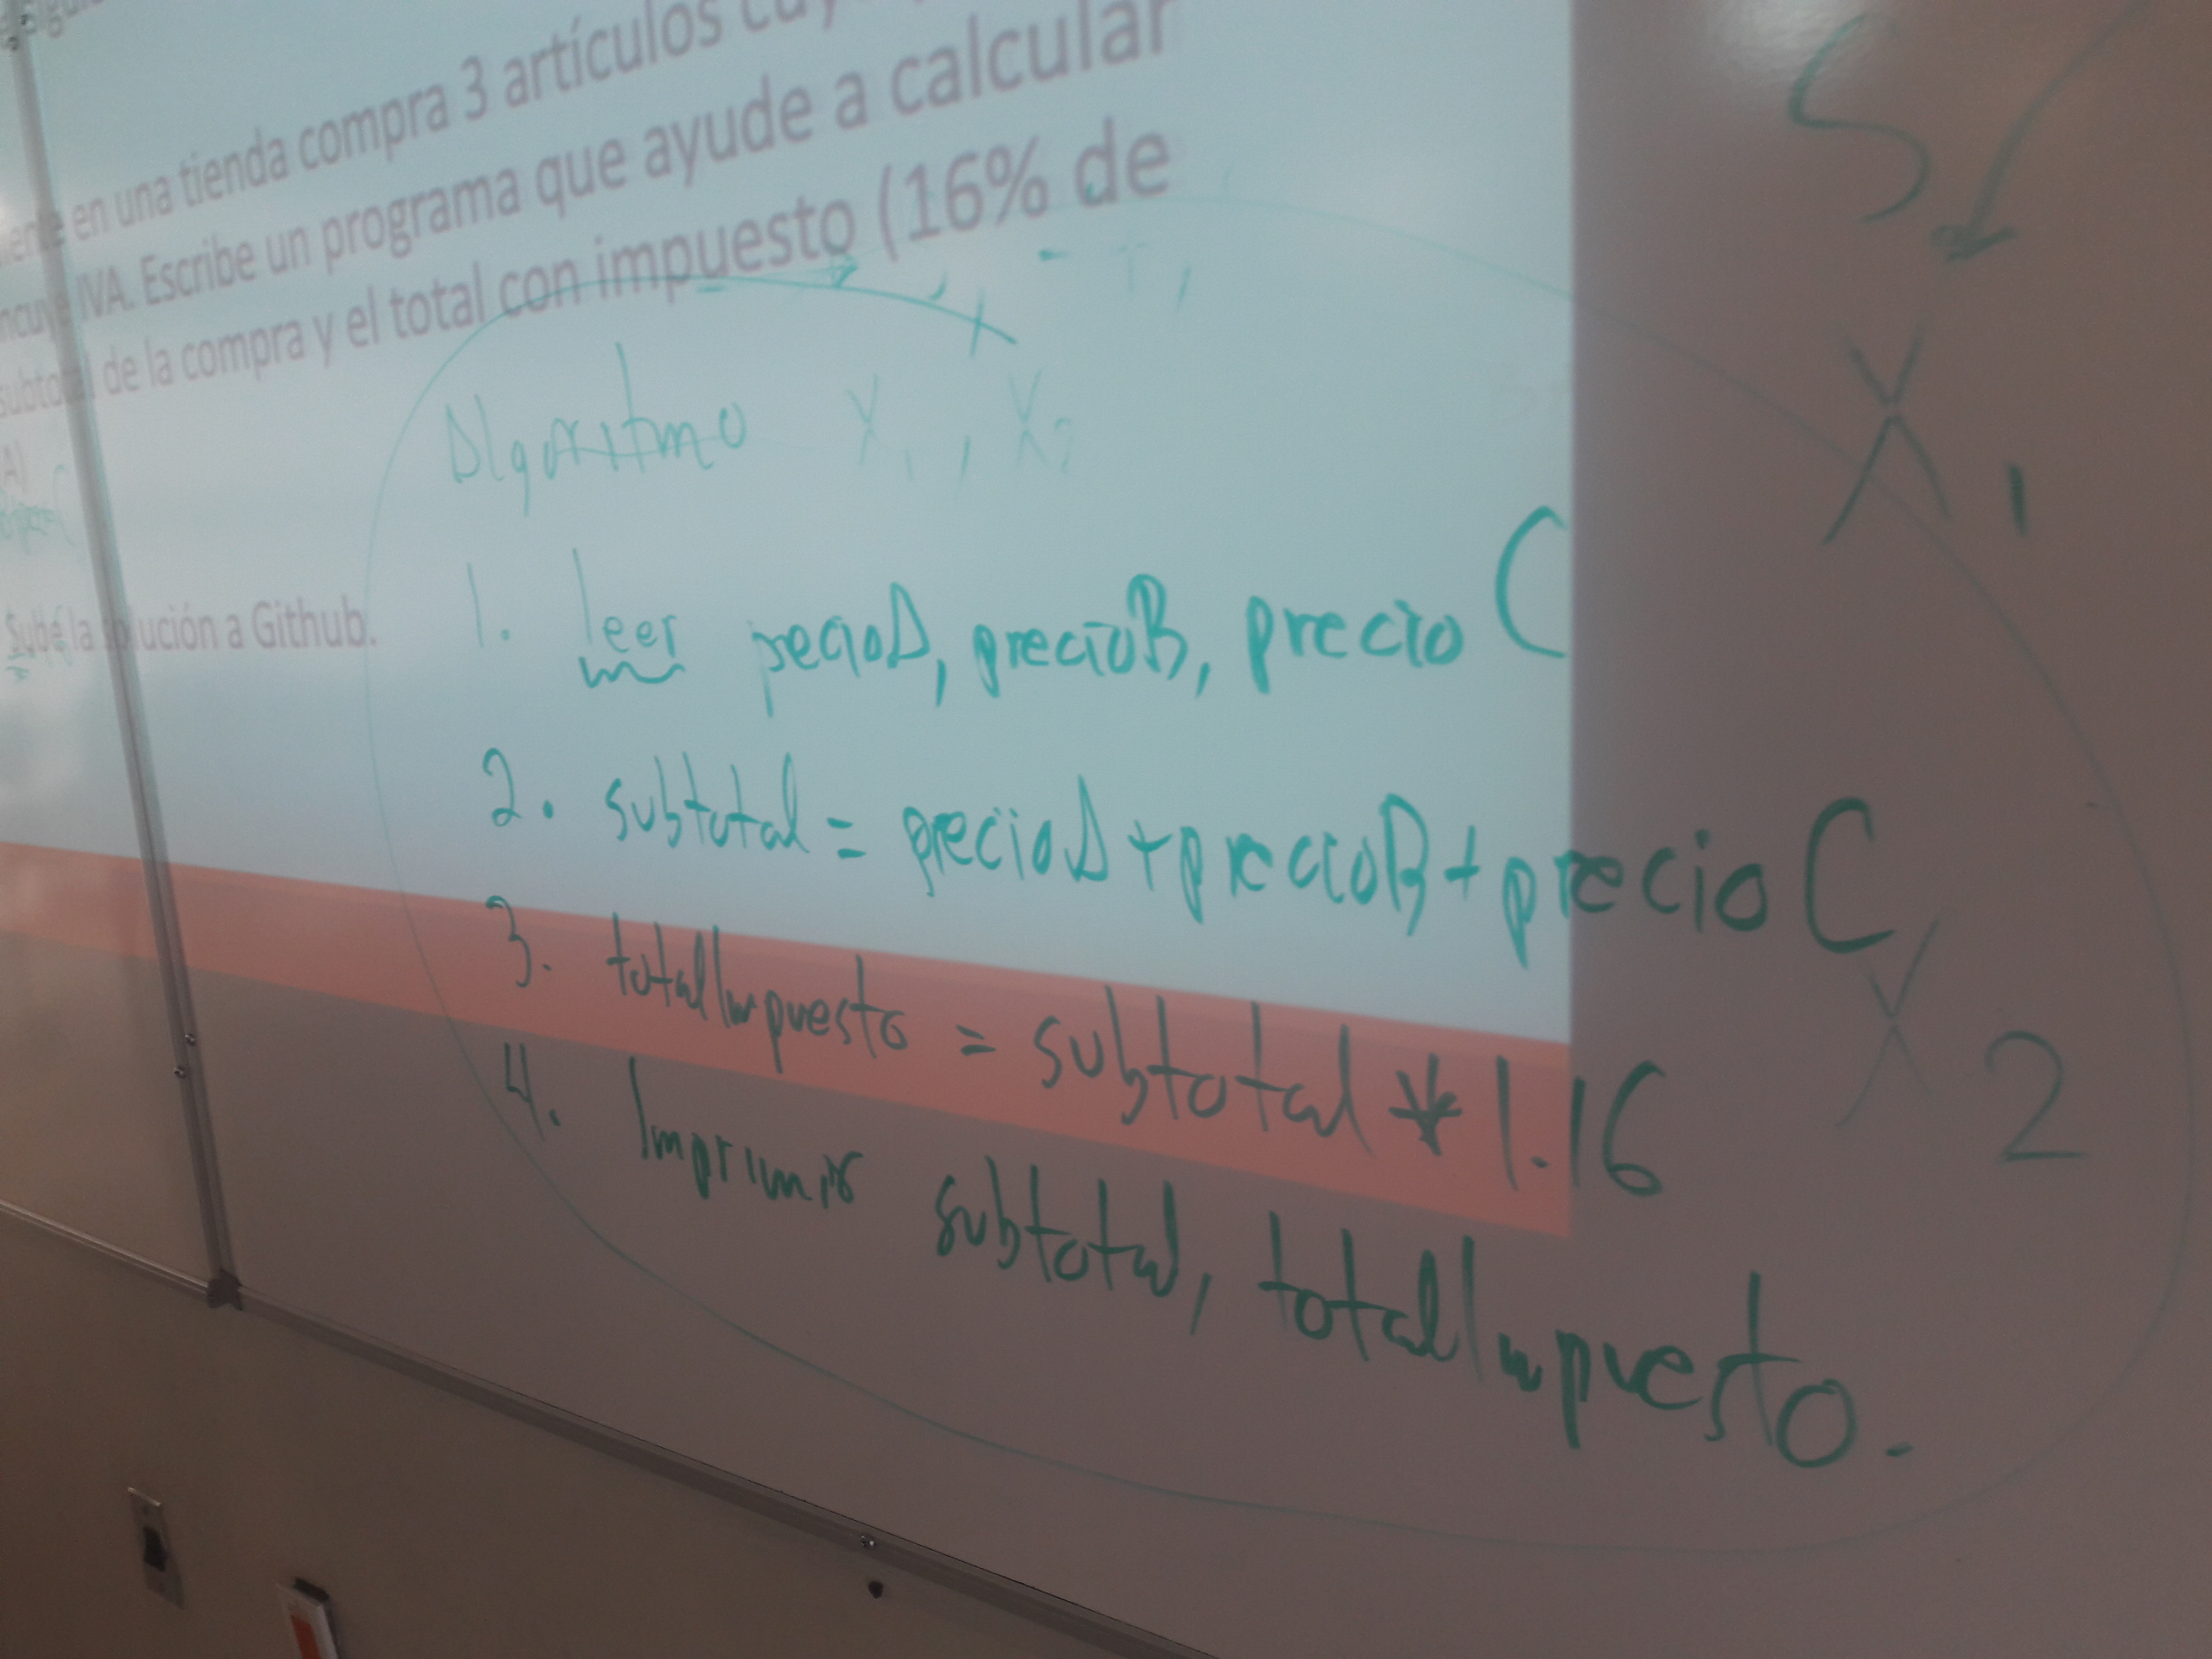 en una tienda compra 3 artículos
IVA. Escribe un programa que ayude a calcular
subtotal de la compra y el total con impuesto (16% de
A)
Sube la solución a Github.
S
X1
Algoritmo X1, X2
1. leer precioA, precioB, precioC
2. subtotal = precioA + precioB + precioC
3. totalImpuesto = subtotal * 1.16
X2
4. Imprimir subtotal, totalImpuesto.